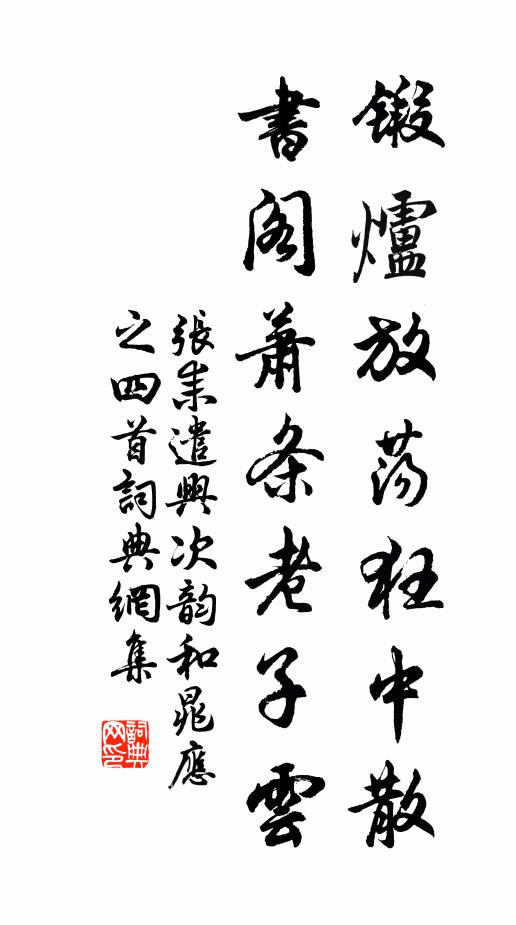 鍛爐放蕩狂中散
書阁蕭条老子雲
張耒遣興次韵和晁應
之四首詞典網集
詞典網印